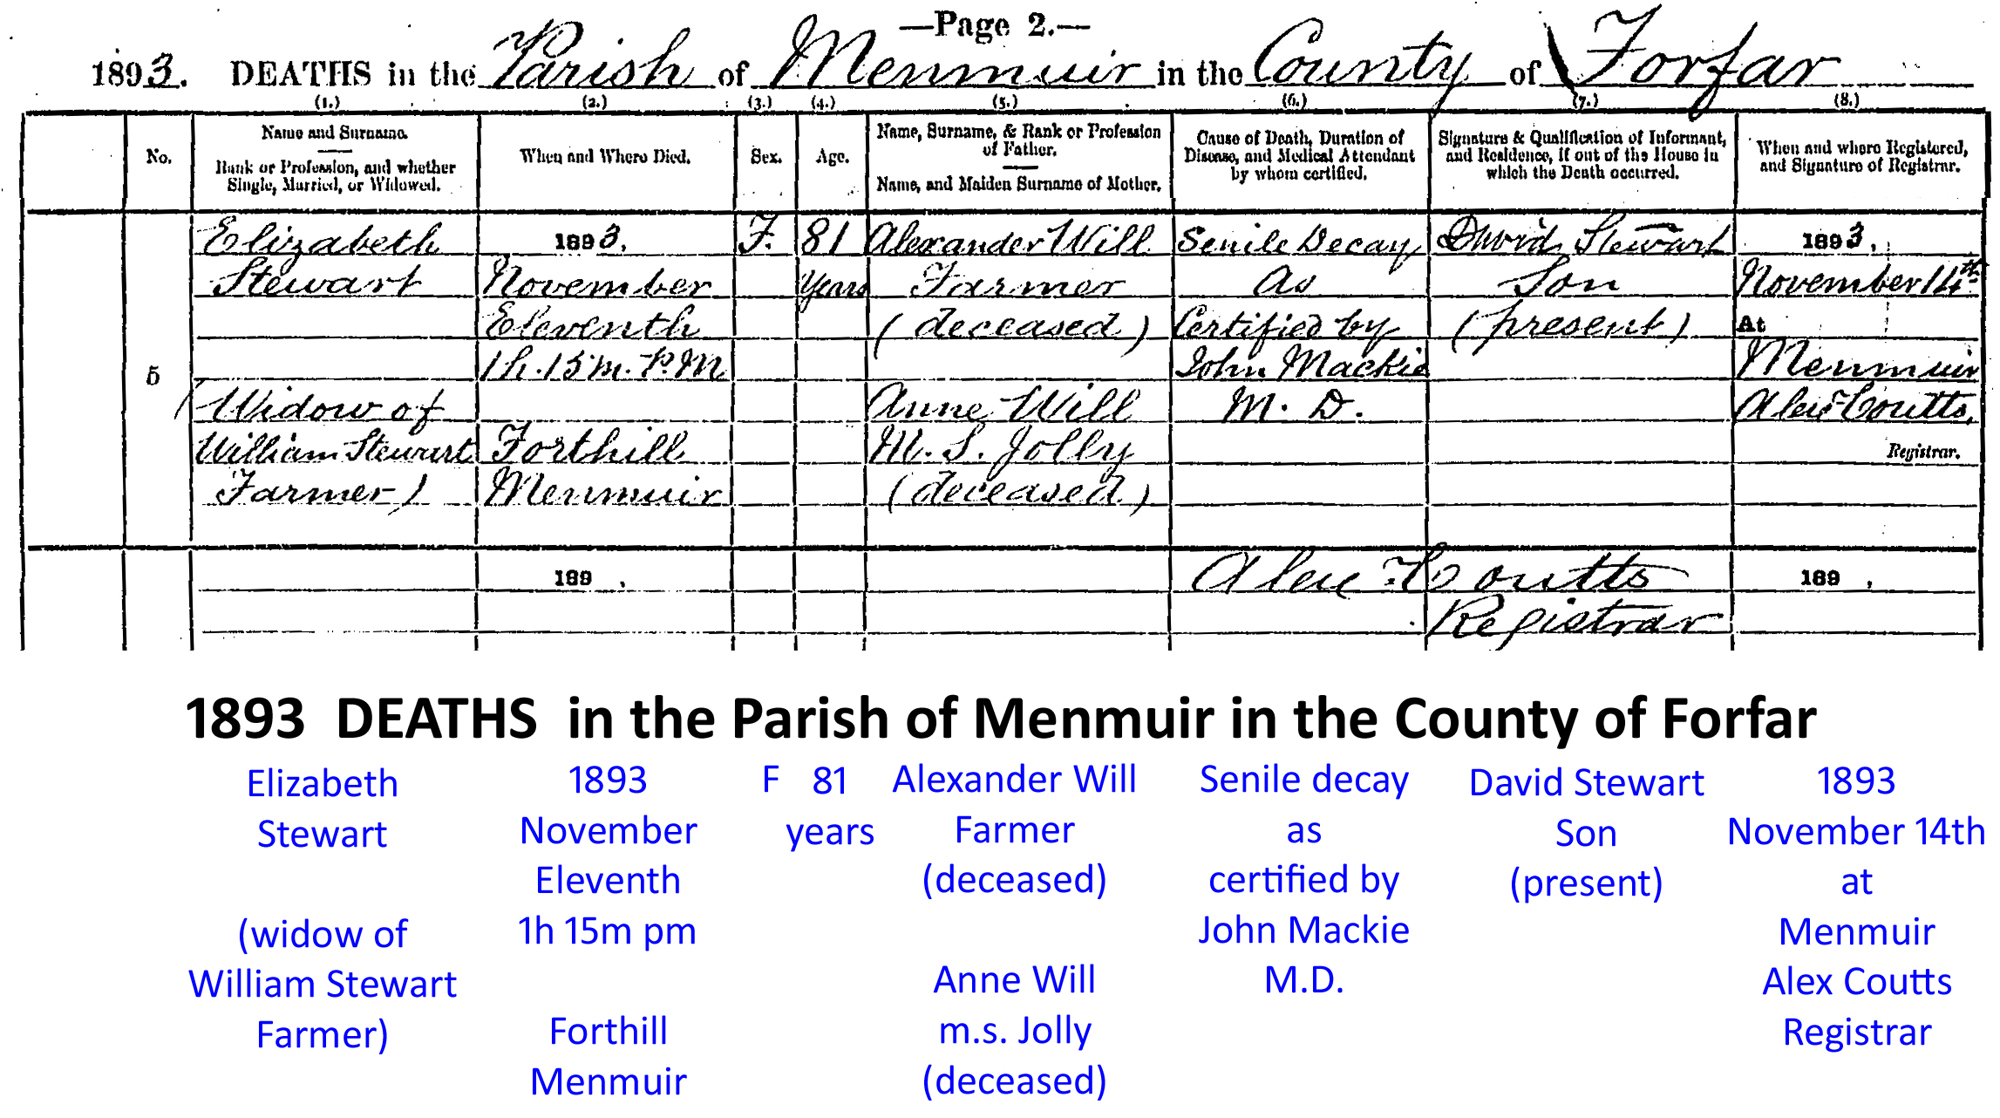 —Page 2.—
1893. DEATHS in the Parish of Menmuir in the County of Forfar
(1.) (2.) (3.) (4.) (5.) (6.) (7.) (8.)
No.
Name and Surname.
Rank or Profession, and whether
Single, Married, or Widowed.
When and Where Died.
Sex.
Age.
Name, Surname, & Rank or Profession
of Father.
Name, and Maiden Surname of Mother.
Cause of Death, Duration of
Disease, and Medical Attendant
by whom certified.
Signature & Qualification of Informant,
and Residence, if out of the House in
which the Death occurred.
When and where Registered,
and Signature of Registrar.
5
Elizabeth
Stewart
(Widow of
William Stewart
Farmer)
1893.
November
Eleventh
1h. 15m. P.M
Forthill
Menmuir
F.
81
Years
Alexander Will
Farmer
(deceased)
Anne Will
M. S. Jolly
(deceased)
Senile Decay
As
Certified by
John Mackie
M. D.
David Stewart
Son
(present)
1893.
November 14th
At
Menmuir
Alex Coutts,
Registrar.
189 .
Alex Coutts
Registrar
189 .
1893 DEATHS in the Parish of Menmuir in the County of Forfar
Elizabeth
Stewart
(widow of
William Stewart
Farmer)
1893
November
Eleventh
1h 15m pm
Forthill
Menmuir
F
81
years
Alexander Will
Farmer
(deceased)
Anne Will
m.s. Jolly
(deceased)
Senile decay
as
certified by
John Mackie
M.D.
David Stewart
Son
(present)
1893
November 14th
at
Menmuir
Alex Coutts
Registrar